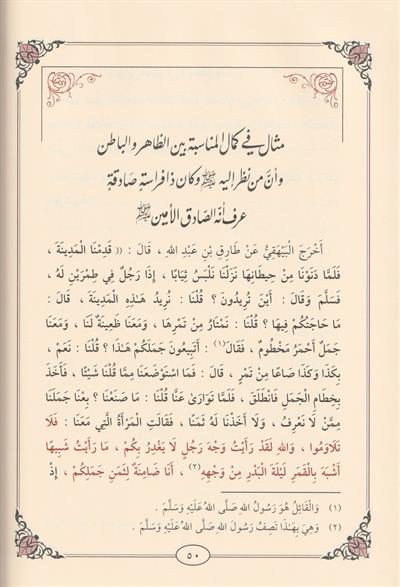 مثال في كمال المناسبة بين الظاهر والباطن
وأنَّ من نظر إليه ﷺ وكان ذا فراسة صادقة
عرف أنه الصادق الأمين ﷺ
أَخْرَجَ الْبَيْهَقِيُّ عَنْ طَارِقِ بْنِ عَبْدِ اللهِ ، قَالَ : (( قَدِمْنَا الْمَدِينَةَ ،
فَلَمَّا دَنَوْنَا مِنْ حِيطَانِهَا نَزَلْنَا نَلْبَسُ ثِيَابًا ، إِذَا رَجُلٌ فِي طِمْرَيْنِ لَهُ ،
فَسَلَّمَ وَقَالَ : أَيْنَ تُرِيدُونَ ؟ قُلْنَا : نُرِيدُ هَـٰذِهِ الْمَدِينَةَ ، قَالَ :
مَا حَاجَتُكُمْ فِيهَا ؟ قُلْنَا : نَمْتَارُ مِنْ تَمْرِهَا ، وَمَعَنَا ظَعِينَةٌ لَنَا ، وَمَعَنَا
جَمَلٌ أَحْمَرُ مَخْطُومٌ ، فَقَالَ(١) : أَتَبِيعُونَ جَمَلَكُمْ هَـٰذَا ؟ قُلْنَا : نَعَمْ ،
بِكَذَا وَكَذَا صَاعًا مِنْ تَمْرٍ ، قَالَ : فَمَا اسْتَوْضَعَنَا مِمَّا قُلْنَا شَيْئًا ، فَأَخَذَ
بِخِطَامِ الْجَمَلِ فَانْطَلَقَ ، فَلَمَّا تَوَارَىٰ عَنَّا قُلْنَا : مَا صَنَعْنَا ؟ بِعْنَا جَمَلَنَا
مِمَّنْ لَا نَعْرِفُ ، وَلَا أَخَذْنَا لَهُ ثَمَنًا ، فَقَالَتِ الْمَرْأَةُ الَّتِي مَعَنَا : فَلَا
تَلَاوَمُوا ، وَاللهِ لَقَدْ رَأَيْتُ وَجْهَ رَجُلٍ لَا يَغْدِرُ بِكُمْ ، مَا رَأَيْتُ شَبِيهًا
أَشْبَهَ بِالْقَمَرِ لَيْلَةَ الْبَدْرِ مِنْ وَجْهِهِ(٢) ، أَنَا ضَامِنَةٌ لِثَمَنِ جَمَلِكُمْ ، إِذْ
(١) وَالْقَائِلُ هُوَ رَسُولُ اللهِ صَلَّى اللهُ عَلَيْهِ وَسَلَّمَ .
(٢) وَهِيَ بِهَـٰذَا تَصِفُ رَسُولَ اللهِ صَلَّى اللهُ عَلَيْهِ وَسَلَّمَ .
٥٠